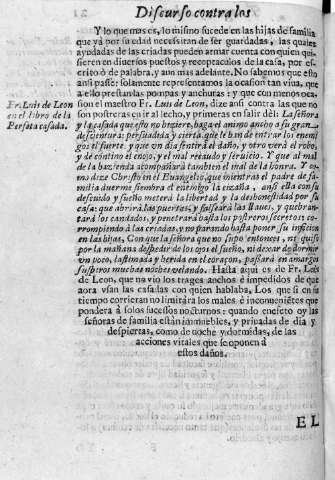 Discurso contra los
Y lo que mas es, lo mismo sucede en las hijas de familia
que yà por su edad necessitan de ser guardadas, las quales
ayudadas de las criadas pueden armar cuenta con quien quisieren
en diversos puestos y receptaculos de la casa, por escrito
ò de palabra, y aun mas adelante. No sabemos que esto
ansi passe: solamente representamos la ocasion tan viva, que
a ello prestan las pompas y anchuras: y que con menos ocasion
el maestro Fr. Luis de Leon, dize ansi contra las que no
son postreras en ir al lecho, y primeras en salir dèl. La señora
y la casada que esto no hiziere, haga el animo ancho a su gran
desventura: persuadida y cierta, que le han de entrar los enemigos
el fuerte. y que un dia sentirà el daño, y otro verà el robo,
y de contino el enojo, y el mal recaudo y servicio. Y que al mal
de la hazienda acompañarà tambien el mal de la honra. Y como
dize Christo en el Euangelio, que mientras el padre de familia
duerme siembra el enemigo la cizaña, ansi ella con su
descuido y sueño meterà la libertad y la deshonestidad por su
casa: que abrirà las puertas, y falsearà las llaves, y quebrantarà
los candados, y penetrarà hasta los postreros secretos: corrompiendo
à las criadas, y no parando hasta poner su infición
en las hijas, Con que la señora que no supo entonces, ni quiso
por la mañana despedir de los ojos el sueño, ni dexar de dormir
un poco, lastimada y herida en el coraçon, passarà en amargos
suspiros muchas noches velando. Hasta aqui es de Fr. Luis
de Leon, que no vio los trages anchos è impedidos de que
aora usan las casadas con quien hablaba, Los que si en su
tiempo corrieran no limitàra los males è inconuenietes que
pondera à solos sucessos nocturnos: quando en efeto oy las
señoras de familia estàn immuebles, y privadas de dia y
despiertas, como de noche y dormidas, de las
acciones vitales que se oponen à
estos daños.
Fr. Luis de Leon
en el libro de la
Perfeta casada.
EL